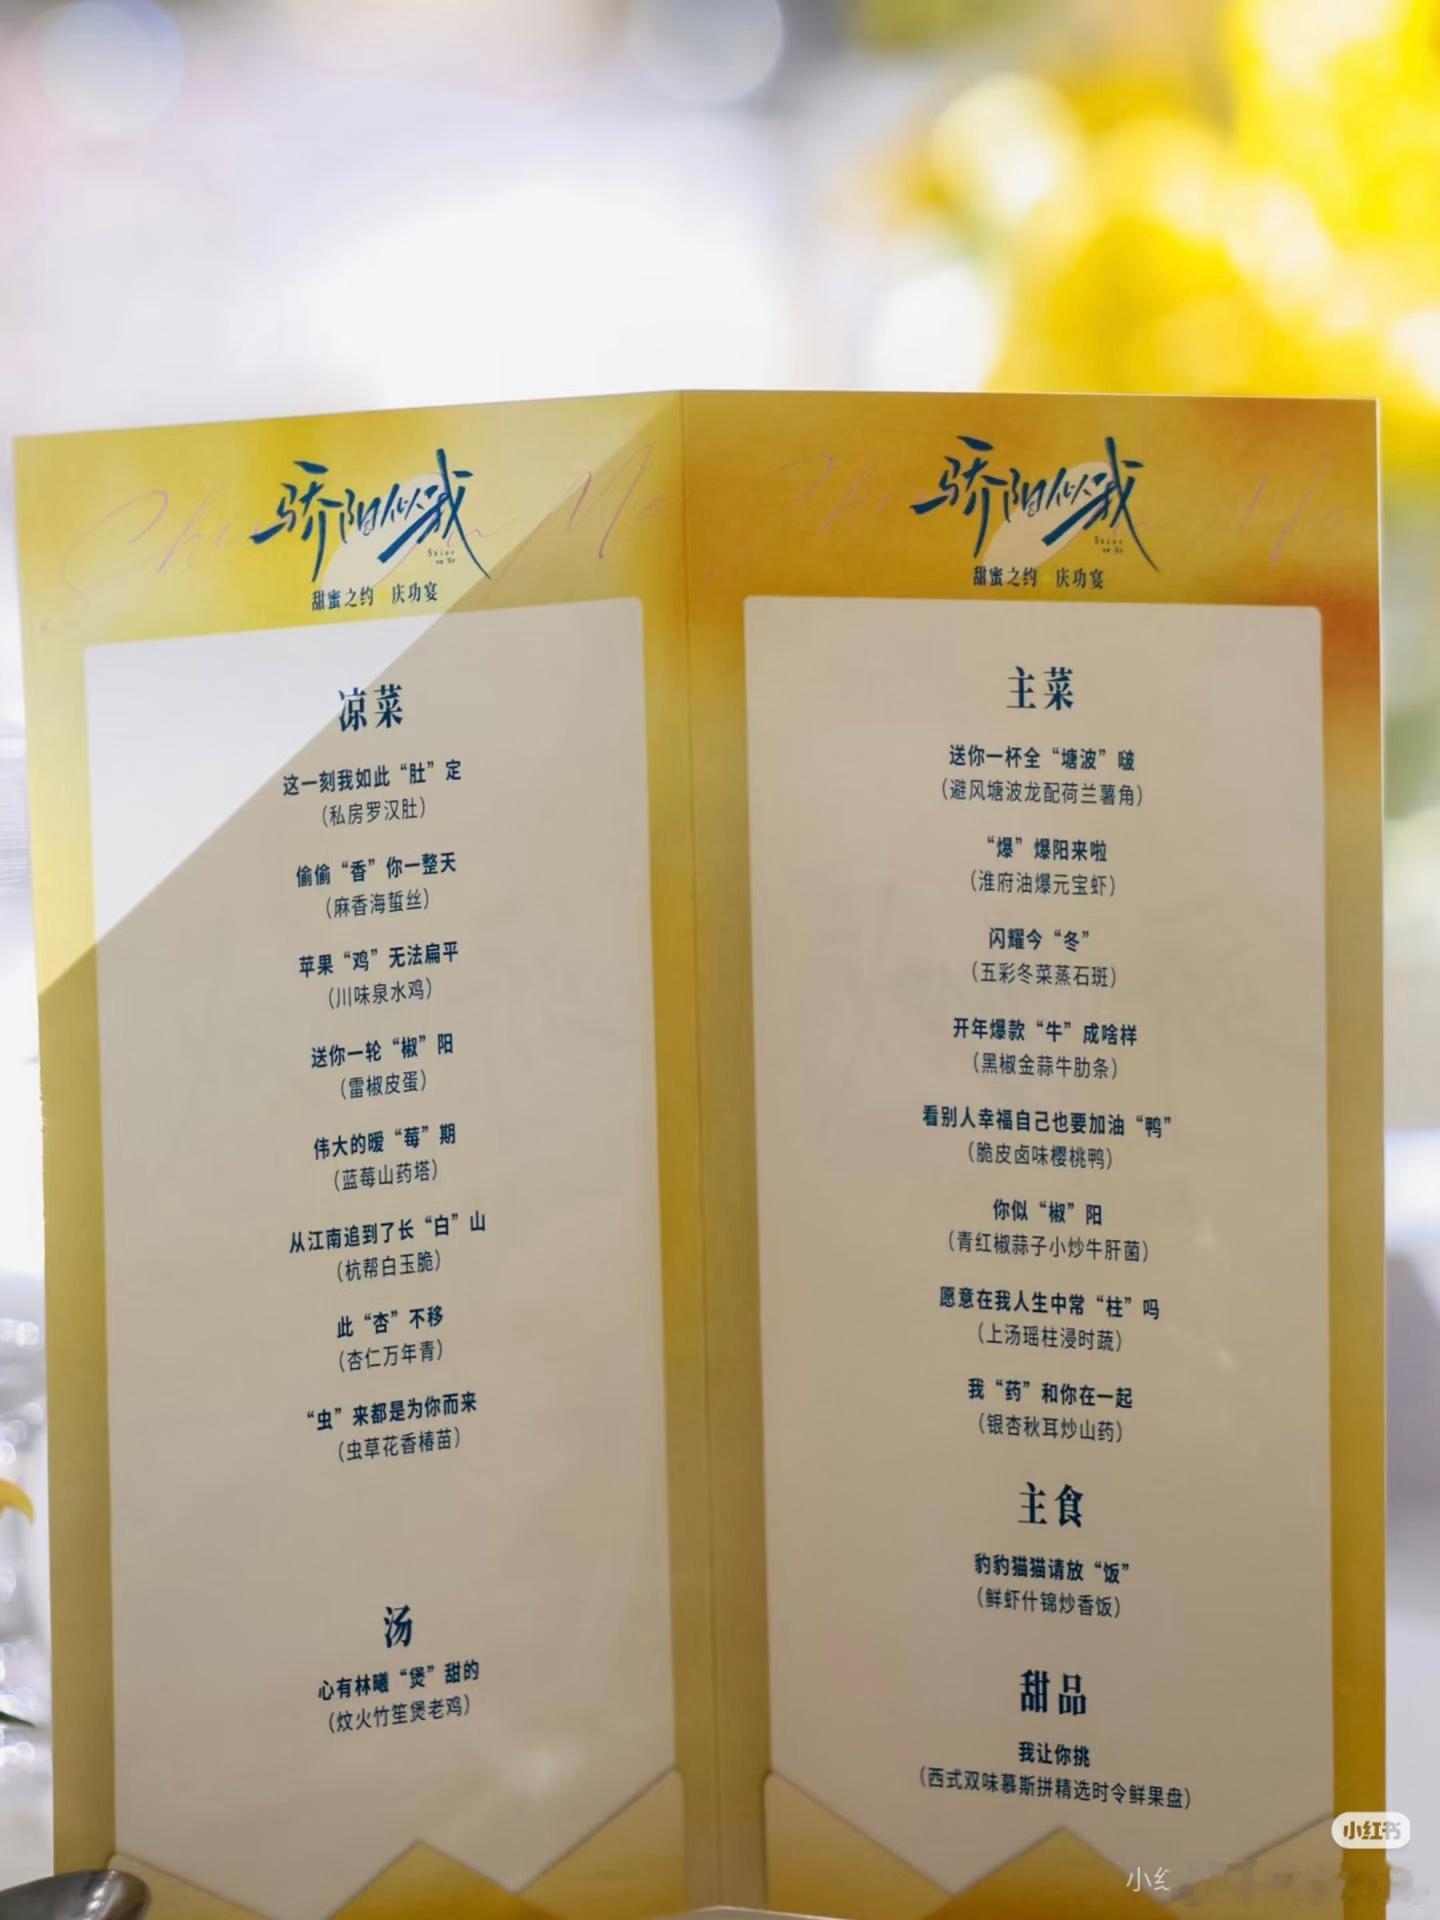 骄阳似我
Shine
on Me
甜蜜之约 庆功宴
凉菜
这一刻我如此“肚”定
（私房罗汉肚）
偷偷“香”你一整天
（麻香海蜇丝）
苹果“鸡”无法扁平
（川味泉水鸡）
送你一轮“椒”阳
（雷椒皮蛋）
伟大的暧“莓”期
（蓝莓山药塔）
从江南追到了长“白”山
（杭帮白玉脆）
此“杏”不移
（杏仁万年青）
“虫”来都是为你而来
（虫草花香椿苗）
汤
心有林曦“煲”甜的
（炆火竹笙煲老鸡）
骄阳似我
Shine
on Me
甜蜜之约 庆功宴
主菜
送你一杯全“塘波”啵
（避风塘波龙配荷兰薯角）
“爆”爆阳来啦
（淮府油爆元宝虾）
闪耀今“冬”
（五彩冬菜蒸石斑）
开年爆款“牛”成啥样
（黑椒金蒜牛肋条）
看别人幸福自己也要加油“鸭”
（脆皮卤味樱桃鸭）
你似“椒”阳
（青红椒蒜子小炒牛肝菌）
愿意在我人生中常“柱”吗
（上汤瑶柱浸时蔬）
我“药”和你在一起
（银杏秋耳炒山药）
主食
豹豹猫猫请放“饭”
（鲜虾什锦炒香饭）
甜品
我让你挑
（西式双味慕斯拼精选时令鲜果盘）
小红书